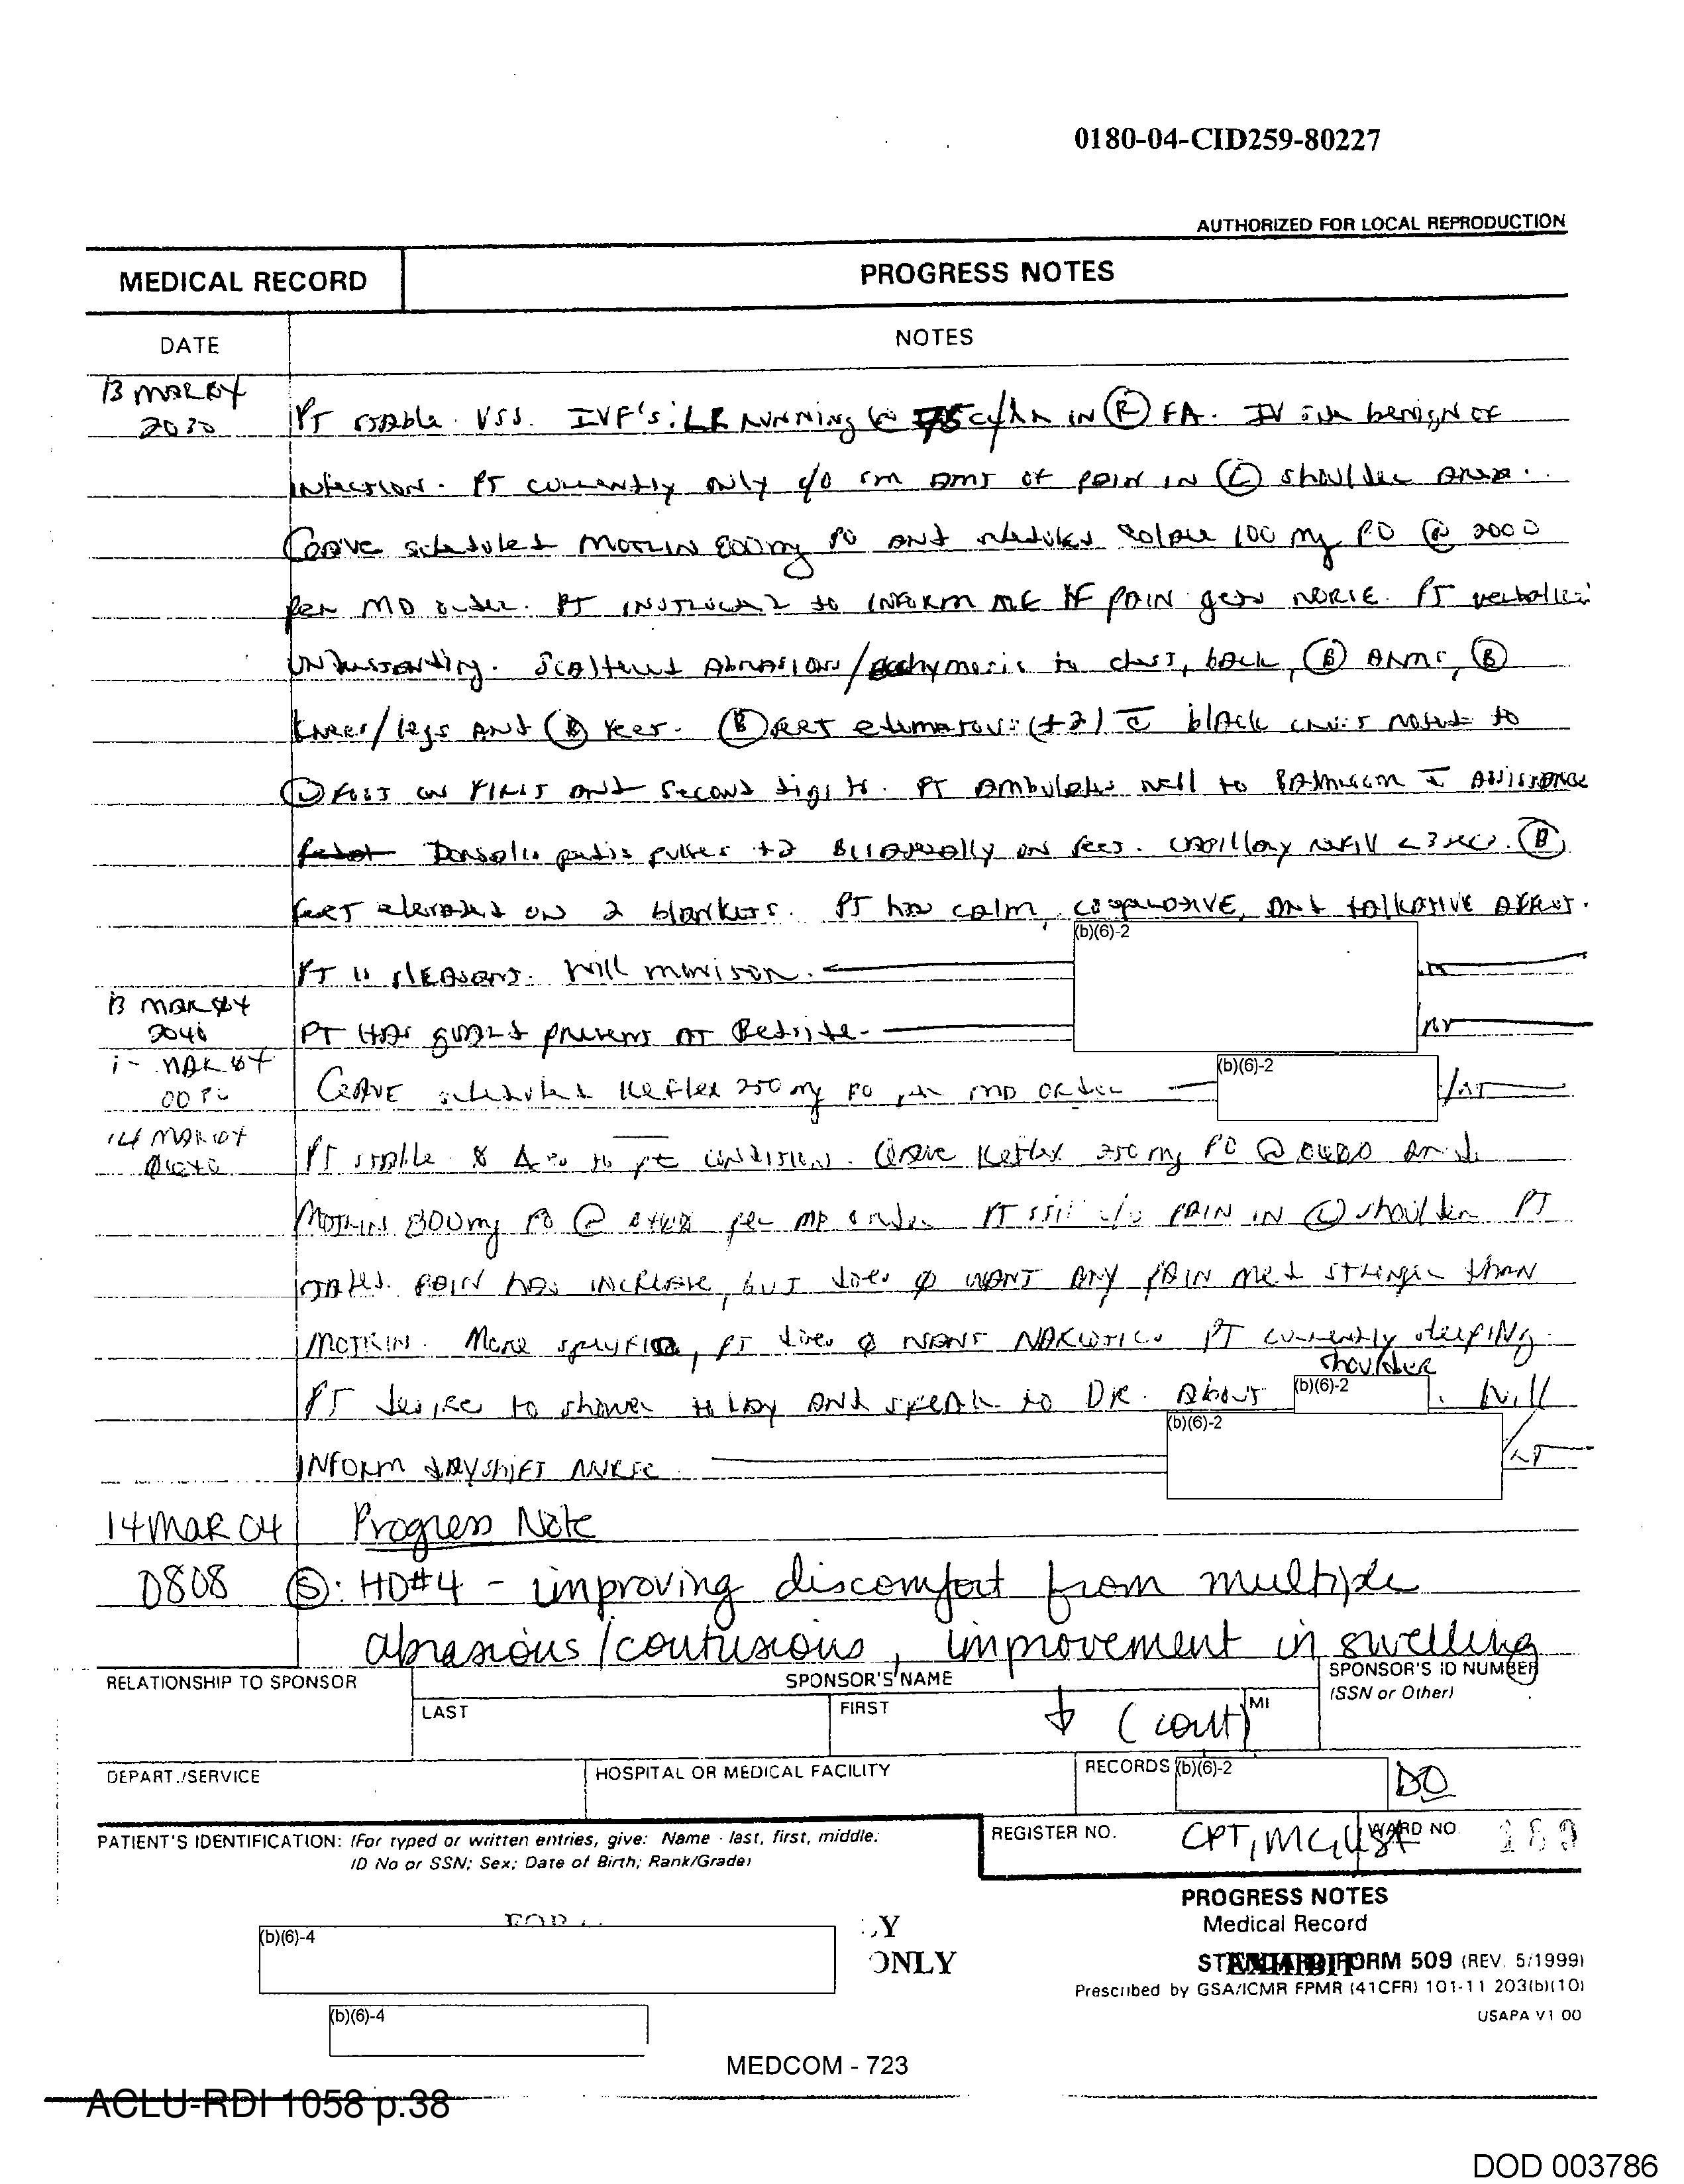 0180-04-CID259-80227
AUTHORIZED FOR LOCAL REPRODUCTION
MEDICAL RECORD
PROGRESS NOTES
DATE
NOTES
13 MAR 04
2030
PT stable. VSS. IVF's: LR running @ 75 cc/hr in (R) FA. IV site benign of
infection. PT currently only c/o sm amt of pain in (L) shoulder area.
Gave scheduled Motrin 800mg PO and scheduled 100 mg PO @ 2000
per MD order. PT instructed to inform me if pain gets worse. PT verbalizes
understanding. Scattered abrasions/ecchymosis to chest, back, (B) arms, (B)
knees/legs and (B) feet. (B) feet edematous (+2) c̄ black noted to
(L) foot on first and second digits. PT ambulates well to bathroom c̄ assistance
Dorsalis pedis pulses +2 bilaterally on feet. Capillary refill <3 sec. (B)
feet elevated on 2 blankets. PT has calm, cooperative, and talkative affect.
(b)(6)-2
PT is pleasant. Will monitor.
13 MAR 04
2040
PT has guard present at bedside.
MAR 04
(b)(6)-2
Gave scheduled Keflex 250 mg PO per MD order
14 MAR 04
PT stable. Ø Δ to pt condition. Gave Keflex 250 mg PO @ 0400 and
Motrin 800mg PO @ per MD order PT still c/o pain in (L) shoulder PT
states pain has increase, but does Ø want any pain med stronger than
Motrin. More specific, PT does Ø want narcotics PT currently sleeping.
shoulder
PT desires to shower today and speak to DR. about (b)(6)-2 . Will
(b)(6)-2
inform dayshift nurse
14 MAR 04 Progress Note
0808 (S): HD#4 - improving discomfort from multiple
abrasions/contusions, improvement in swelling
RELATIONSHIP TO SPONSOR
SPONSOR'S NAME
SPONSOR'S ID NUMBER
(SSN or Other)
LAST
FIRST
MI
↓ (cont)
DEPART./SERVICE
HOSPITAL OR MEDICAL FACILITY
RECORDS
(b)(6)-2
DO
PATIENT'S IDENTIFICATION: (For typed or written entries, give: Name - last, first, middle;
ID No or SSN; Sex; Date of Birth; Rank/Grade)
REGISTER NO.
WARD NO.
CPT, MC, USA
189
PROGRESS NOTES
Medical Record
STANDARD FORM 509 (REV. 5/1999)
EXHIBIT
Prescribed by GSA/ICMR FPMR (41CFR) 101-11 203(b)(10)
USAPA V1 00
(b)(6)-4
ONLY
(b)(6)-4
MEDCOM - 723
ACLU-RDI 1058 p.38
DOD 003786